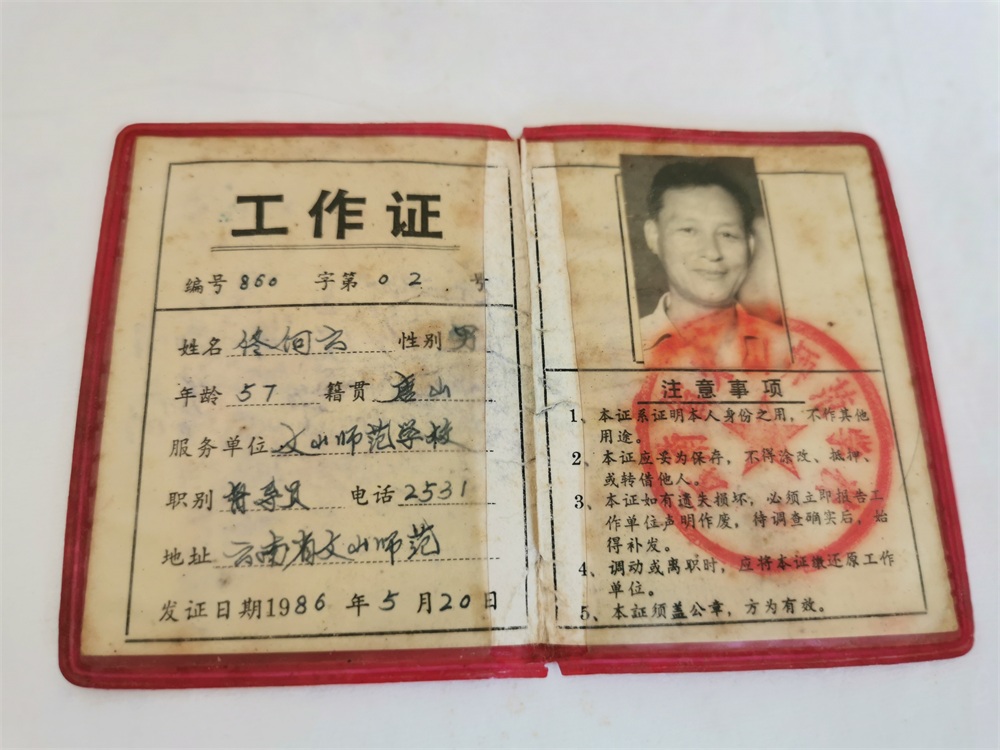 工作证
编号 860 字第 02 号
姓名 佟何云 性别 男
年龄 57 籍贯 唐山
服务单位 文山师范学校
职别 督导员 电话 2531
地址 云南省文山师范
发证日期1986年5月20日
注意事项
1、本证系证明本人身份之用，不作其他
用途。
2、本证应妥为保存，不得涂改、抵押、
或转借他人。
3、本证如有遗失损坏，必须立即报告工
作单位声明作废，待调查确实后，始
得补发。
4、调动或离职时，应将本证缴还原工作
单位。
5、本証须盖公章，方为有效。